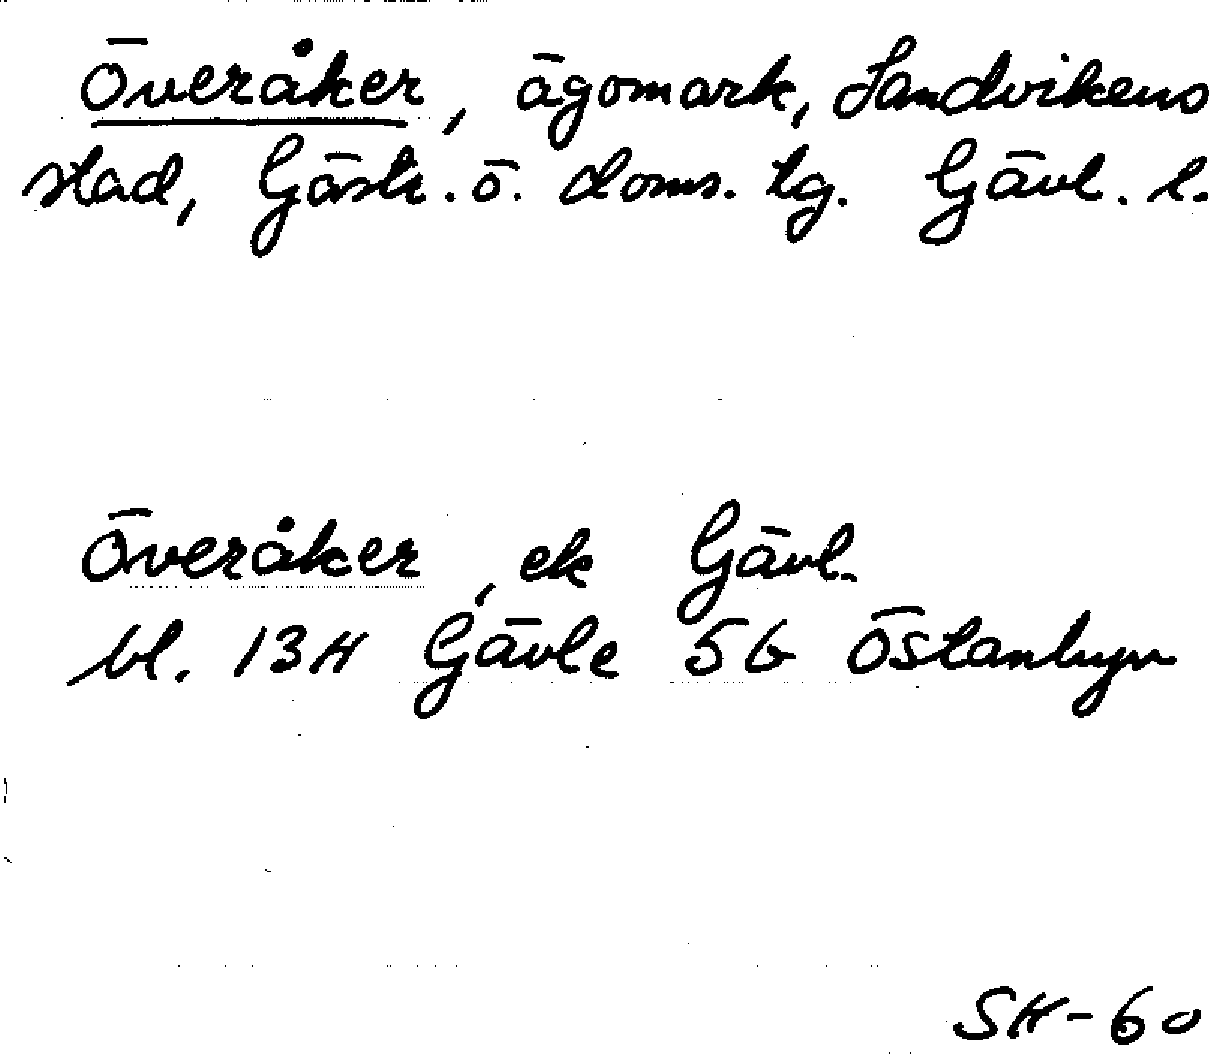 Överåker, ägomark, Sandvikens
stad, Gästr. ö. doms. tg. Gävl. l.
Överåker, ek Gävl.
bl. 13H Gävle 5G Östanbyn
SH-60